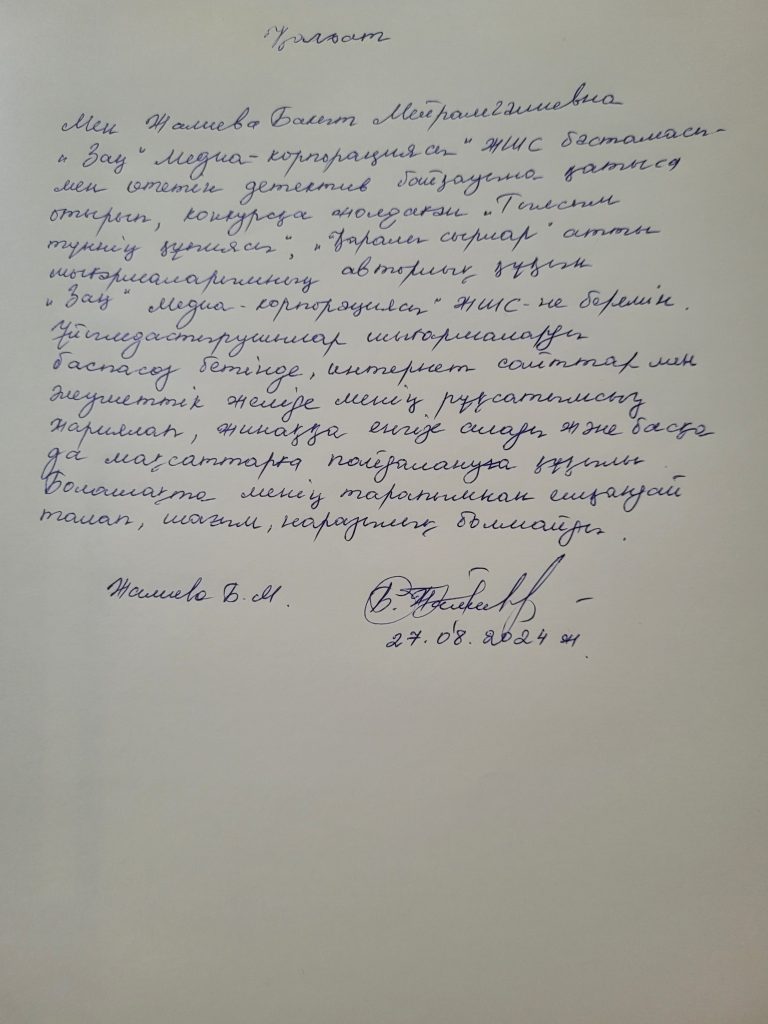 Қолхат
Мен Жалиева Бакыт Мейрамгалиевна
"Заң" Медиа-корпорациясы" ЖШС бастамасы-
мен өтетін детектив байқауына қатыса
отырып, конкурсқа жолдаған "Тылсым
түннің құпиясы", "Қаралы сырлар" атты
шығармаларымның авторлық құқын
"Заң" Медиа-корпорациясы" ЖШС-не беремін.
Ұйымдастырушылар шығармаларды
баспасөз бетінде, интернет сайттар мен
әлеуметтік желіде менің рұқсатымсыз
жариялап, жинаққа енгізе алады және басқа
да мақсаттарға пайдалануға құқылы.
Болашақта менің тарапымнан ешқандай
талап, шағым, наразылық болмайды.
Жалиева Б.М.
27.08.2024 ж.